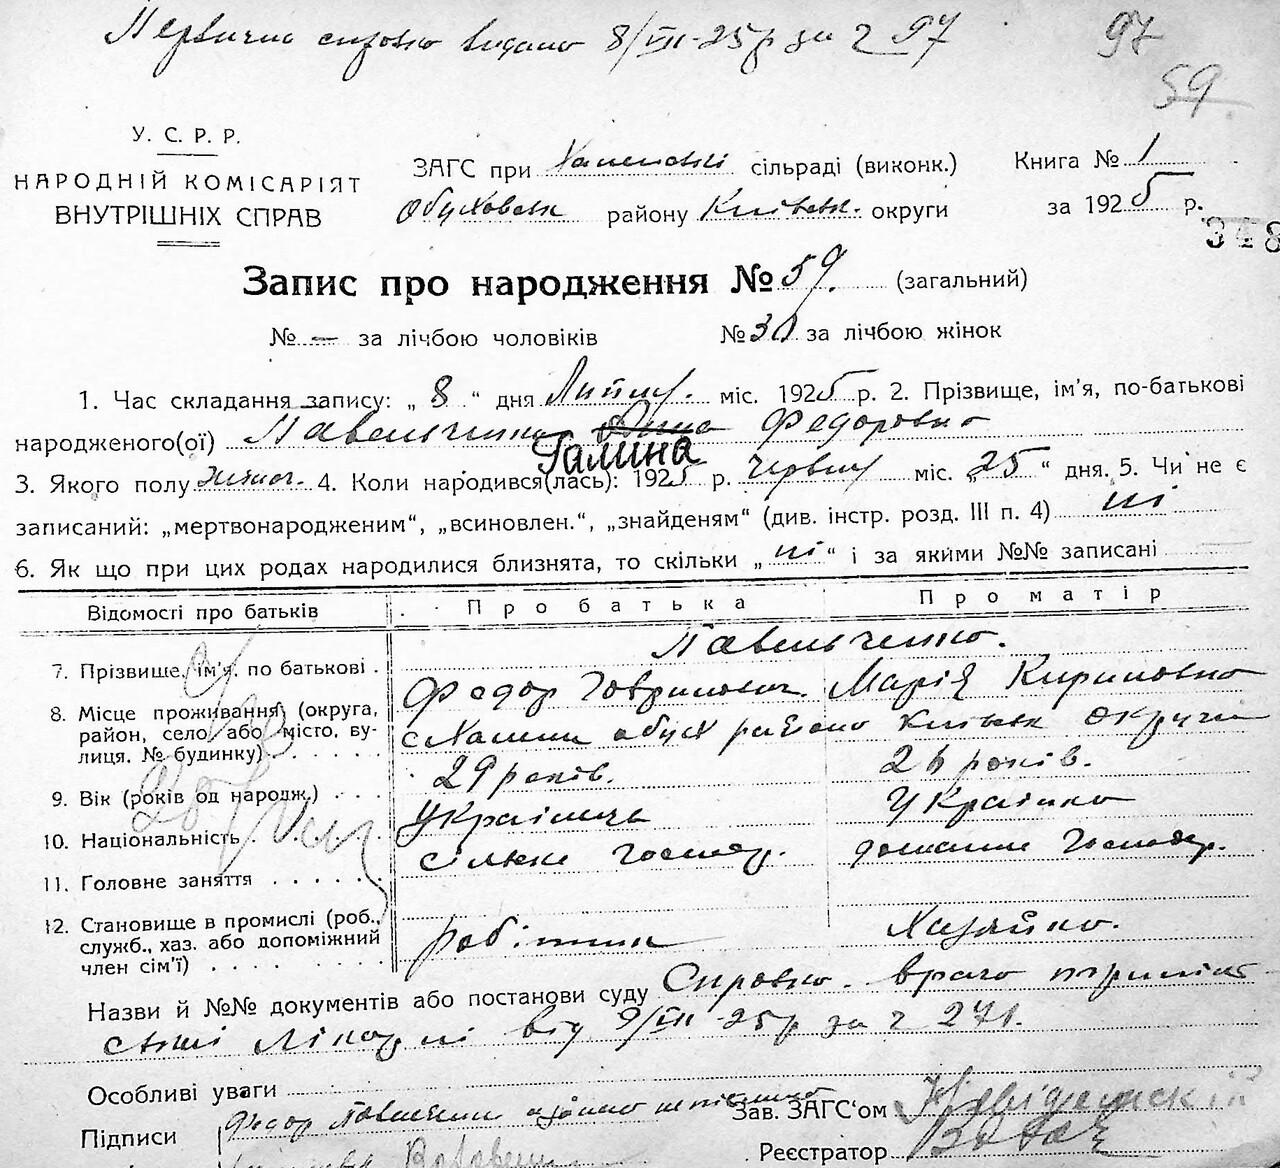 Первичн справко видано 8/VII-25р за ч 97 97
59
У. С. Р. Р.
НАРОДНІЙ КОМІСАРІЯТ
ВНУТРІШНІХ СПРАВ
ЗАГС при сільраді (виконк.) Книга № 1
Обуховськ району Київськ. округи за 1925 р.
348
Запис про народження № 59. (загальний)
№ — за лічбою чоловіків № 30 за лічбою жінок
1. Час складання запису: „ 8 “ дня Липня. міс. 1925 р. 2. Прізвище, ім'я, по-батькові
народженого(ої) Павельченко Федоровно
Галина
3. Якого полу жіноч. 4. Коли народився(лась): 1925 р. червня міс. „25“ дня. 5. Чи не є
записаний: „мертвонародженим“, „всиновлен.“, „знайденям“ (див. інстр. розд. III п. 4) ні
6. Як що при цих родах народилися близнята, то скільки „ні“ і за якими №№ записані
Відомості про батьків Про батька Про матір
Павельченко.
7. Прізвище, ім'я, по батькові . Федор Гаврилович. Марія Кириловно
8. Місце проживання (округа, район, село або місто, вулиця, № будинку) . . . . . с Халепи обух району Київськ округи
9. Вік (років од народж.) . . . 29 років. 26 років.
10. Національність . . . . . . Українець Українко
11. Головне заняття . . . . . . сільске господ. домашнє господар.
12. Становище в промислі (роб., служб., хаз. або допоміжний член сім'ї) . . . . . . . робітник Хазяйко.
Назви й №№ документів або постанови суду Справко врачо
лікарні від 9/VII-25р за ч 271.
Особливі уваги
Підписи Федор Зав. ЗАГС'ом
Реєстратор